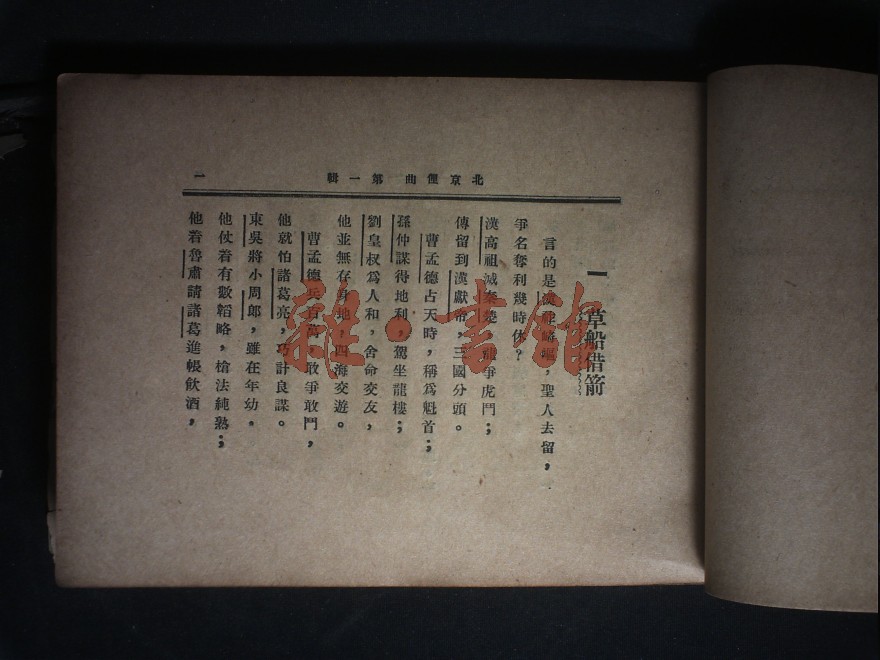 北京俚曲 第一輯
一
一 草船借箭
言的是漢 ，聖人去留，
爭名奪利幾時休？
漢高祖滅秦楚，龍爭虎鬥；
傳留到漢獻帝，三國分頭。
曹孟德占天時，稱爲魁首；
孫仲謀得地利，駕坐龍樓；
劉皇叔爲人和，舍命交友，
他並無存身地，四海交遊。
曹孟德兵百萬，敢爭敢鬥，
他就怕諸葛亮，巧計良謀。
東吳將小周郎，雖在年幼。
他仗着有數韜略，槍法純熟；
他着魯肅請諸葛進帳飲酒，
雜·書館